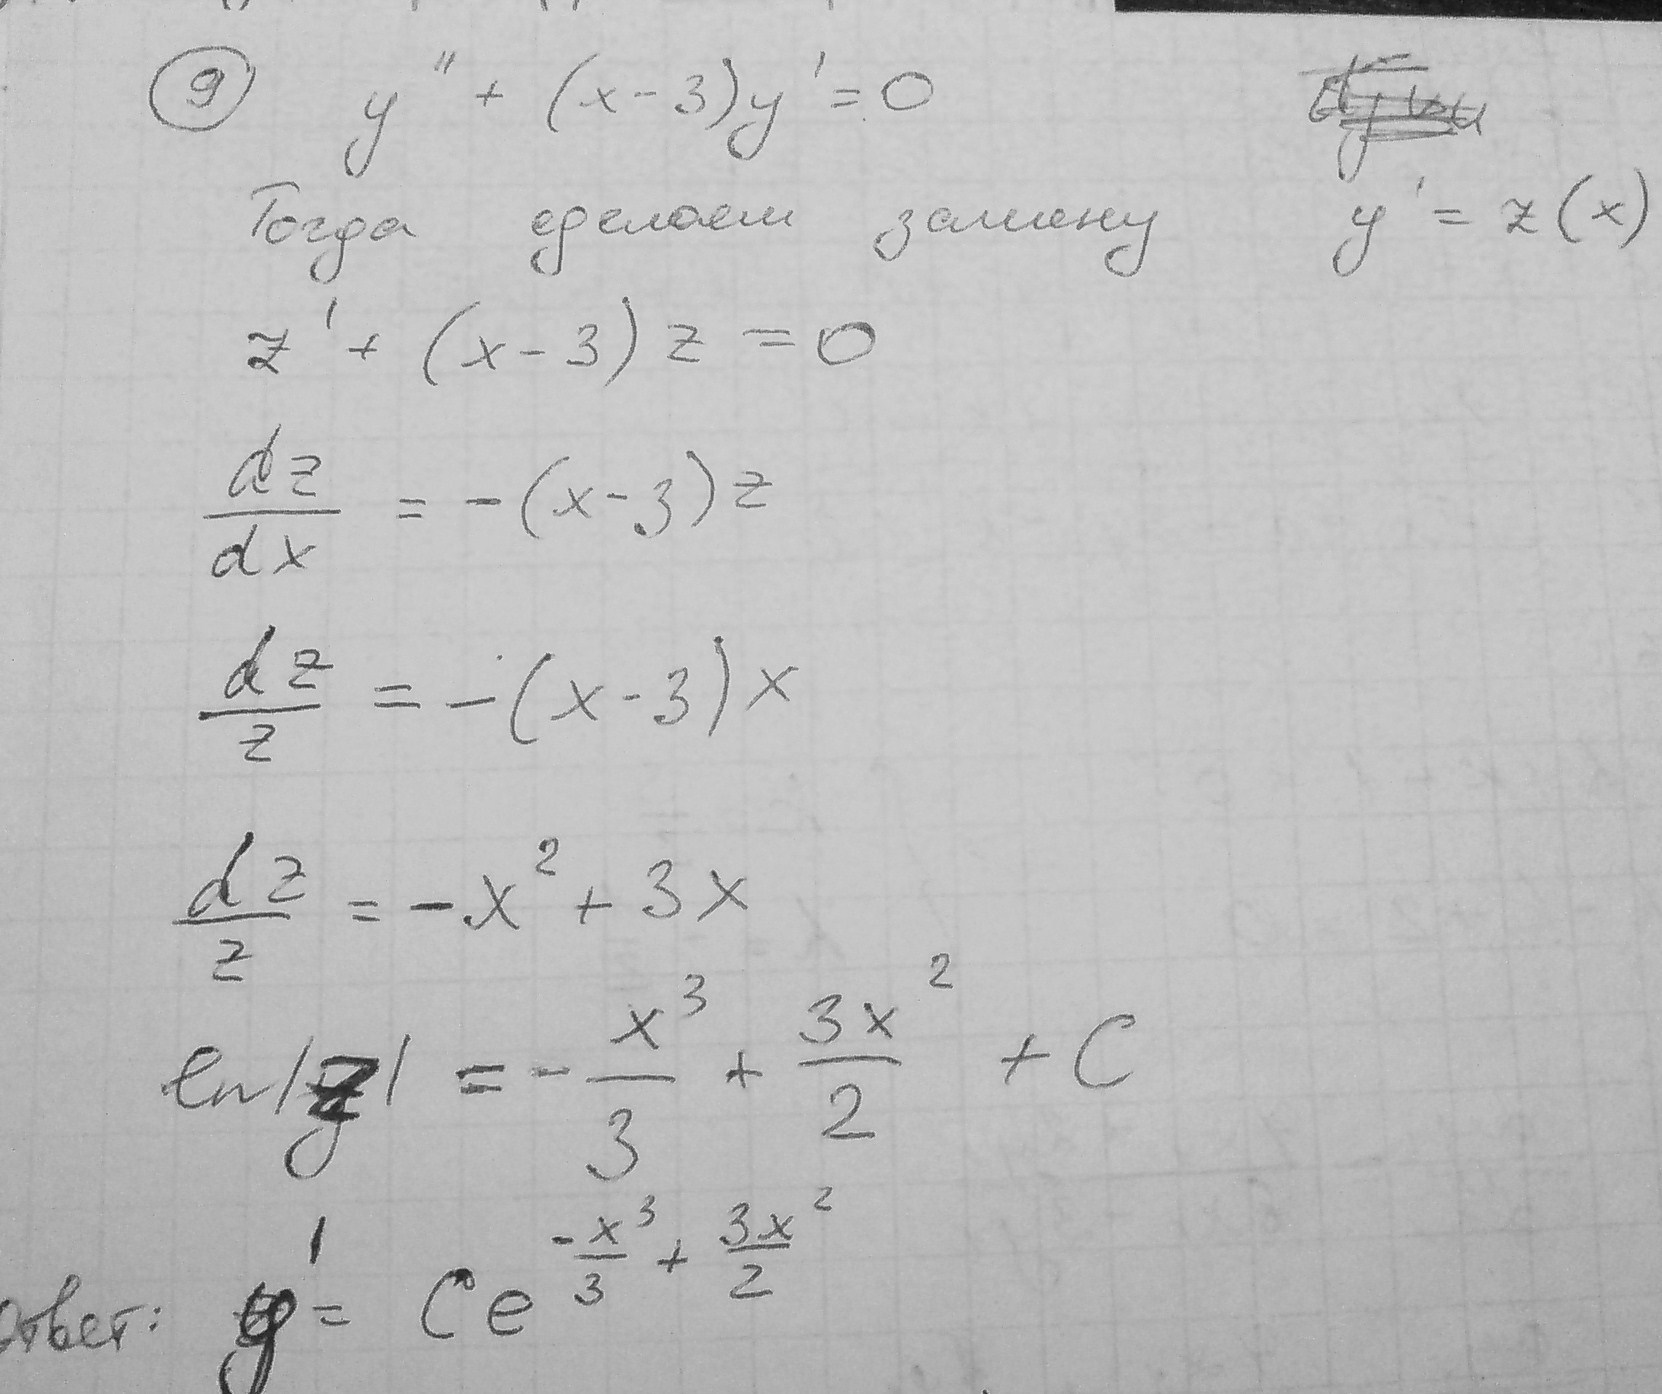 9 y'' + (x-3)y' = 0
Тогда сделаем замену y' = z(x)
z' + (x-3)z = 0
dz/dx = -(x-3)z
dz/z = -(x-3)x
dz/z = -x² + 3x
ln|z| = -x³/3 + 3x²/2 + C
Ответ: y' = Ce^(-x³/3 + 3x²/2)